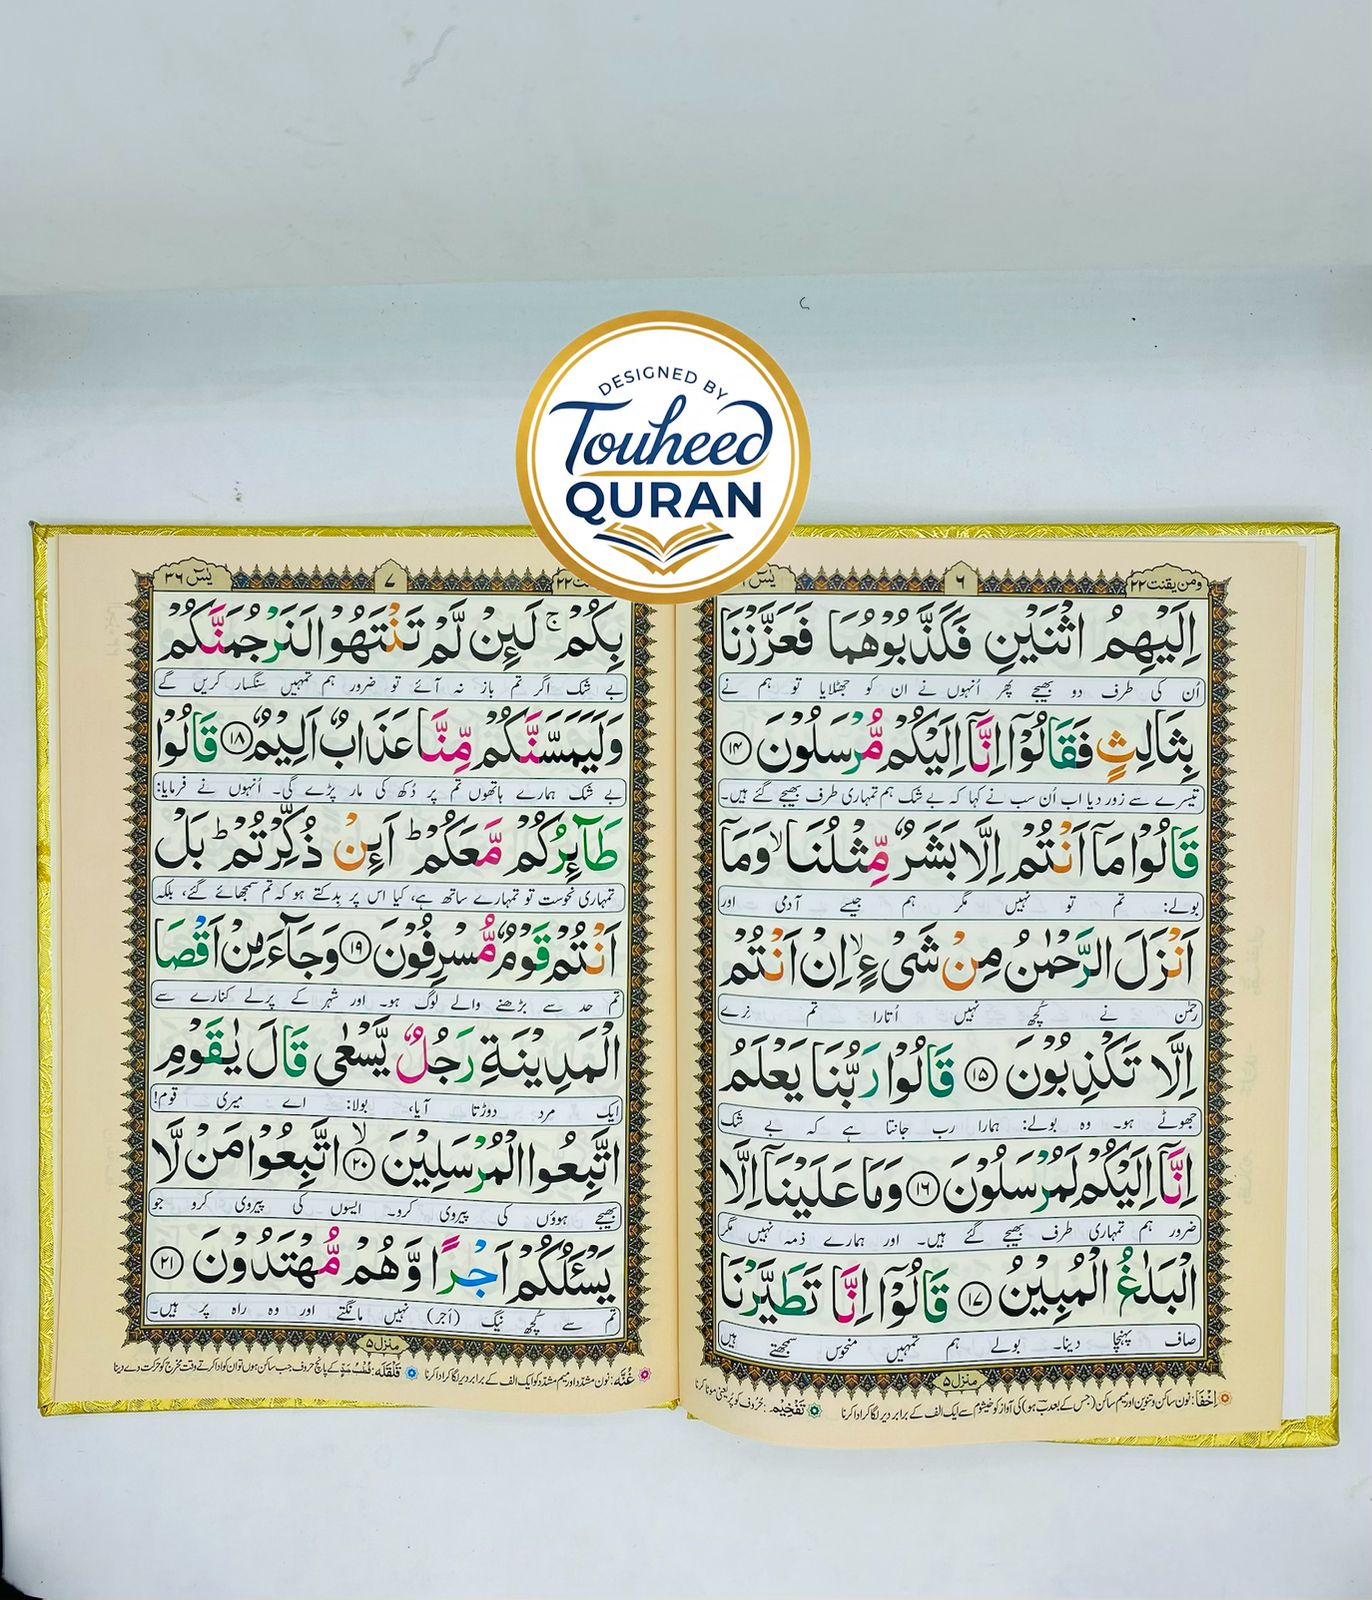 DESIGNED BY
Touheed
QURAN
ومن يقنت ٢٢
٦
يٰسٓ
اِلَيْهِمُ اثْنَيْنِ فَكَذَّبُوْهُمَا فَعَزَّزْنَا
اُن کی طرف دو بھیجے پھر اُنہوں نے ان کو جھٹلایا تو ہم نے
بِثَالِثٍ فَقَالُوْۤا اِنَّاۤ اِلَيْكُمْ مُّرْسَلُوْنَ ١٤
تیسرے سے زور دیا اب اُن سب نے کہا کہ بے شک ہم تمہاری طرف بھیجے گئے ہیں۔
قَالُوْا مَاۤ اَنْتُمْ اِلَّا بَشَرٌ مِّثْلُنَا ۙ وَمَاۤ
بولے: تم تو نہیں مگر ہم جیسے آدمی اور
اَنْزَلَ الرَّحْمٰنُ مِنْ شَىْءٍ ۙ اِنْ اَنْتُمْ
رحمٰن نے کچھ نہیں اُتارا تم نرے
اِلَّا تَكْذِبُوْنَ ١٥ قَالُوْا رَبُّنَا يَعْلَمُ
جھوٹے ہو۔ وہ بولے: ہمارا رب جانتا ہے کہ بے شک
اِنَّاۤ اِلَيْكُمْ لَمُرْسَلُوْنَ ١٦ وَمَا عَلَيْنَاۤ اِلَّا
ضرور ہم تمہاری طرف بھیجے گئے ہیں۔ اور ہمارے ذمہ نہیں مگر
الْبَلٰغُ الْمُبِيْنُ ١٧ قَالُوْۤا اِنَّا تَطَيَّرْنَا
صاف پہنچا دینا۔ بولے ہم تمہیں منحوس سمجھتے ہیں
منزل ٥
اِخْفَا: نون ساکن و تنوین اور میم ساکن (جس کے بعد ب ہو) کی آواز کو خیشوم سے ایک الف کے برابر دیر لگا کر ادا کرنا
تَفْخِيْم: حُروف کو پُر یعنی موٹا کرنا
٢٢
٧
يٰسٓ ٣٦
بِكُمْ ۚ لَىِٕنْ لَّمْ تَنْتَهُوْا لَنَرْجُمَنَّكُمْ
بے شک اگر تم باز نہ آئے تو ضرور ہم تمہیں سنگسار کریں گے
وَلَيَمَسَّنَّكُمْ مِّنَّا عَذَابٌ اَلِيْمٌ ١٨ قَالُوْا
بے شک ہمارے ہاتھوں تم پر دُکھ کی مار پڑے گی۔ اُنہوں نے فرمایا:
طَآىِٕرُكُمْ مَّعَكُمْ ؕ اَىِٕنْ ذُكِّرْتُمْ ؕ بَلْ
تمہاری نحوست تو تمہارے ساتھ ہے، کیا اس پر بدکتے ہو کہ تم سمجھائے گئے، بلکہ
اَنْتُمْ قَوْمٌ مُّسْرِفُوْنَ ١٩ وَجَآءَ مِنْ اَقْصَا
تم حد سے بڑھنے والے لوگ ہو۔ اور شہر کے پرلے کنارے سے
الْمَدِيْنَةِ رَجُلٌ يَّسْعٰى قَالَ يٰقَوْمِ
ایک مرد دوڑتا آیا، بولا: اے میری قوم!
اتَّبِعُوا الْمُرْسَلِيْنَ ۙ ٢٠ اتَّبِعُوْا مَنْ لَّا
بھیجے ہوؤں کی پیروی کرو۔ ایسوں کی پیروی کرو جو
يَسْـَٔلُكُمْ اَجْرًا وَّهُمْ مُّهْتَدُوْنَ ٢١
تم سے کچھ نیگ (اجر) نہیں مانگتے اور وہ راہ پر ہیں۔
منزل ٥
غُنَّه: نون مشدّد اور میم مشدّد کو ایک الف کے برابر دیر لگا کر ادا کرنا
قَلْقَلَه: کے پانچ حروف جب ساکن ہوں تو ان کو ادا کرتے وقت مخرج کو حرکت دے دینا